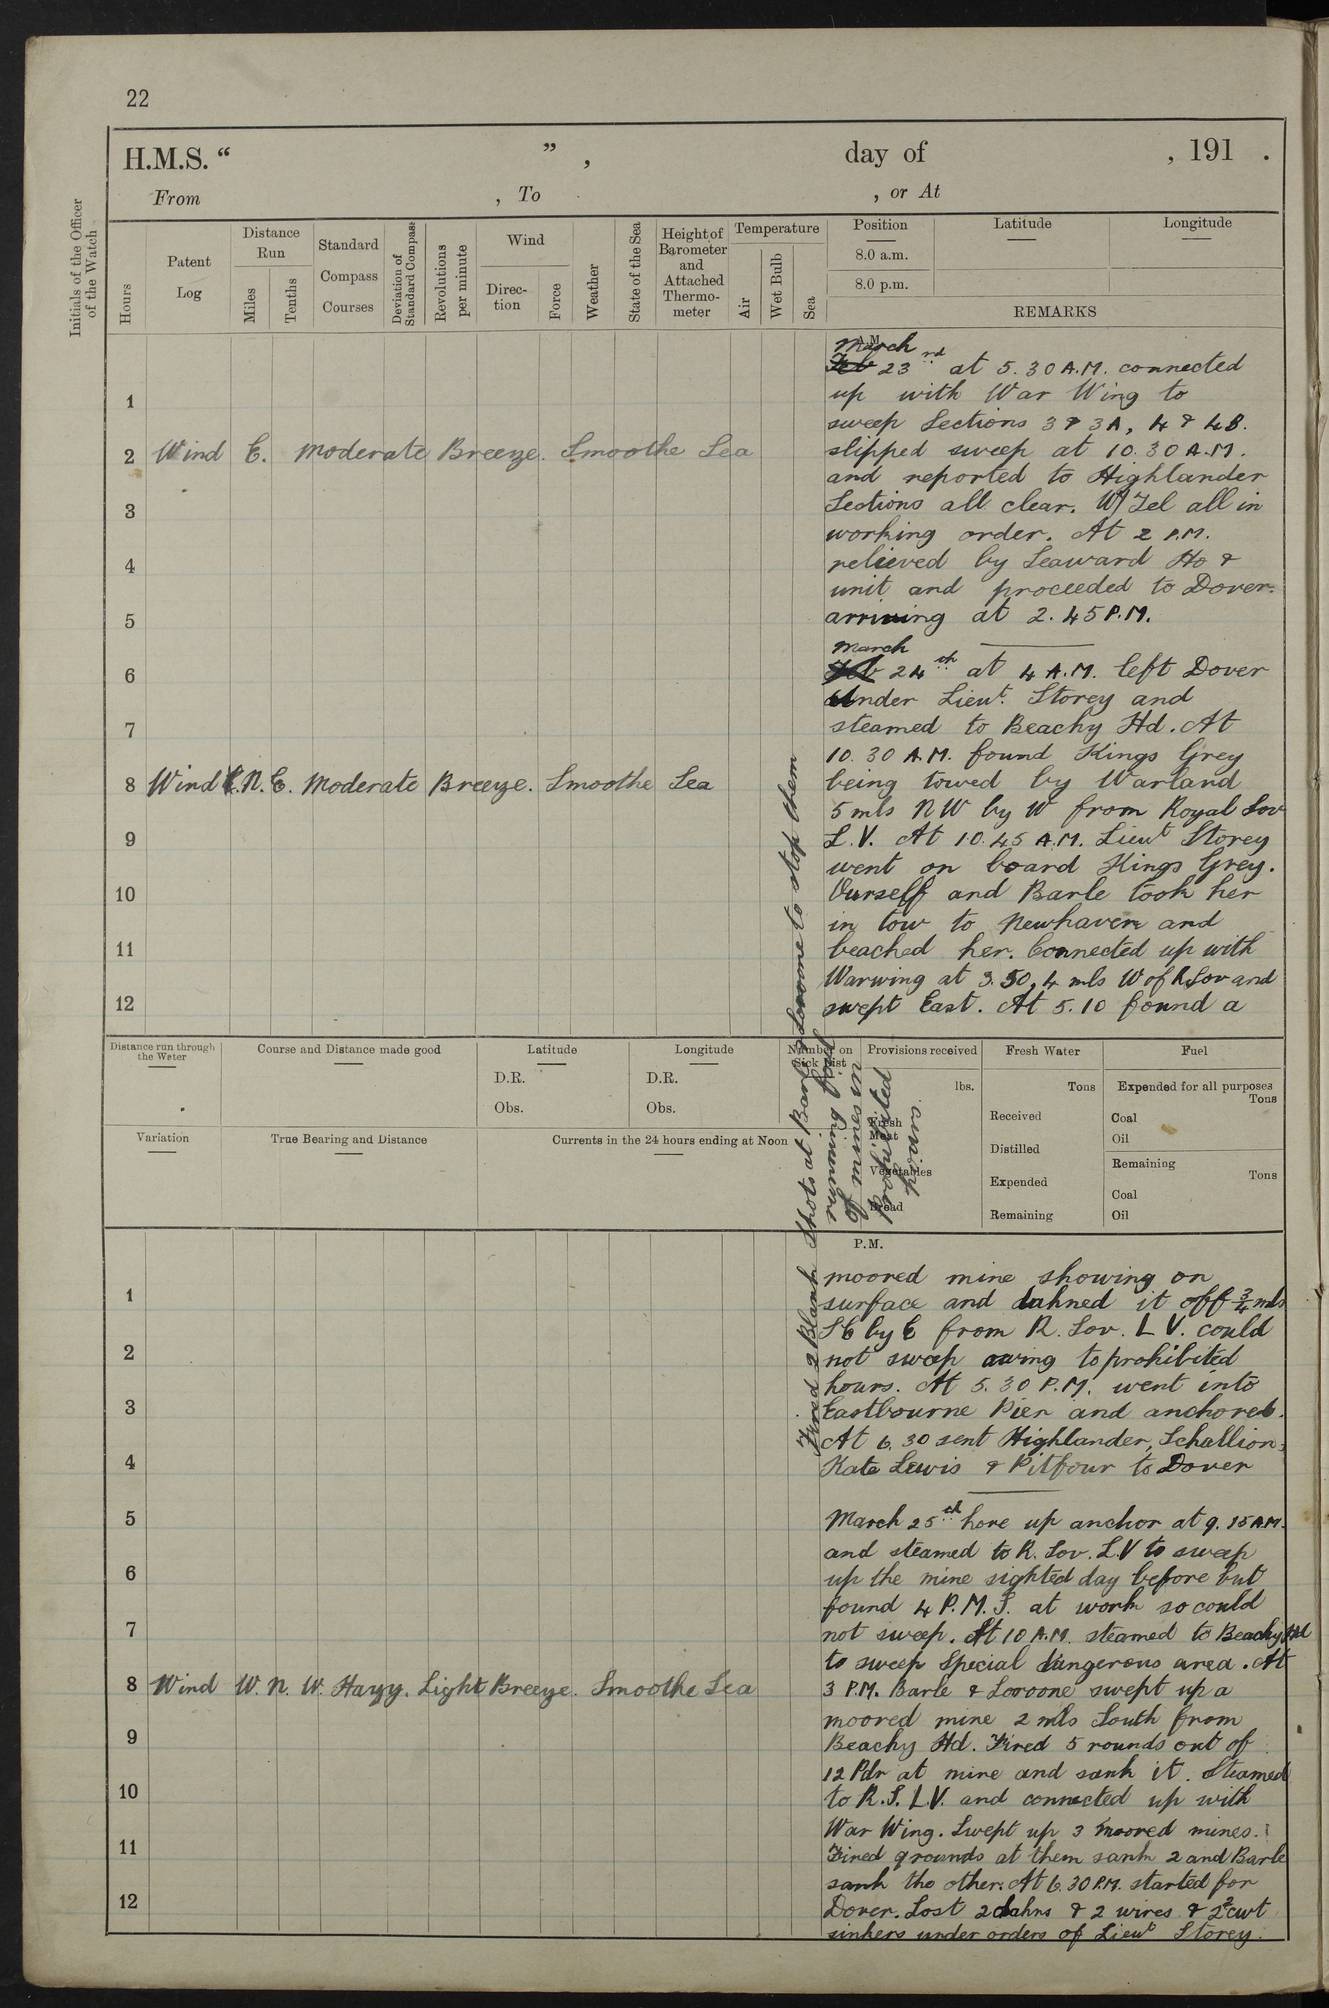 22
H.M.S. “ ” , day of , 191 .
From , To , or At
Initials of the Officer
of the Watch
Hours
Patent
Log
Distance
Run
Miles
Tenths
Standard
Compass
Courses
Deviation of
Standard Compass
Revolutions
per minute
Wind
Direc-
tion
Force
Weather
State of the Sea
Height of
Barometer
and
Attached
Thermo-
meter
Temperature
Air
Wet Bulb
Sea
Position
8.0 a.m.
8.0 p.m.
Latitude
Longitude
REMARKS
A.M.
March
Feb 23rd at 5.30 A.M. connected
1
up with War Wing to
sweep Sections 3 & 3A, 4 & 4B.
2 Wind E. Moderate Breeze. Smoothe Sea
slipped sweep at 10.30 A.M.
and reported to Highlander
3
Sections all clear. W/Tel all in
working order. At 2 P.M.
4
relieved by Seaward Ho &
unit and proceeded to Dover.
5
arriving at 2.45 P.M.
March
6
Feb 24th at 4 A.M. left Dover
Under Lieut. Storey and
7
steamed to Beachy Hd. At
10.30 A.M. found Kings Grey
8 Wind E.N.E. Moderate Breeze. Smoothe Sea
being towed by Warland
5 mls NW by W from Royal Sov
9
L.V. At 10.45 A.M. Lieut Storey
went on board Kings Grey.
10
Ourself and Barle took her
in tow to Newhaven and
11
beached her. Connected up with
Warwing at 3.50, 4 mls W of R Sov and
12
swept East. At 5.10 found a
Distance run through
the Water
Course and Distance made good
Latitude
D.R.
Obs.
Longitude
D.R.
Obs.
Number on
Sick List
Provisions received
lbs.
Fresh
Meat
Vegetables
Bread
Fresh Water
Tons
Received
Distilled
Expended
Remaining
Fuel
Expended for all purposes
Tons
Coal
Oil
Remaining
Tons
Coal
Oil
Variation
True Bearing and Distance
Currents in the 24 hours ending at Noon
Fired 2 Blank Shots at Barle & Lovoone to stop them
running foul
of mines in
prohibited
area
P.M.
moored mine showing on
1
surface and dahned it off 3/4 mls
SE by E from R. Sov. L V. could
2
not sweep owing to prohibited
hours. At 5.30 P.M. went into
3
Eastbourne Pier and anchored.
At 6.30 sent Highlander, Schallion,
4
Kate Lewis & Pitfour to Dover
5
March 25th hove up anchor at 9.15 A.M.
and steamed to R. Sov. L.V to sweep
6
up the mine sighted day before but
found 4 P.M.S. at work so could
7
not sweep. At 10 A.M. steamed to Beachy Hd
to sweep Special dangerous area. At
8 Wind W.N.W. Hazy. Light Breeze. Smoothe Sea
3 P.M. Barle & Lovoone swept up a
moored mine 2 mls South from
9
Beachy Hd. Fired 5 rounds out of
12 Pdr at mine and sank it. Steamed
10
to R.S. L.V. and connected up with
War Wing. Swept up 3 moored mines.
11
Fired 9 rounds at them sank 2 and Barle
sank the other. At 6.30 P.M. started for
12
Dover. Lost 2 dahns & 2 wires & 2 2cwt
sinkers under orders of Lieut Storey.